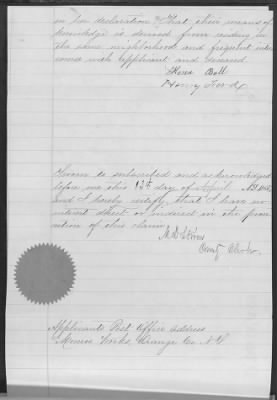 in her declaration & That their means of
knowledge is derived from residing in
the same neighborhood and frequent inter
course with applicant and deceased
Bell
Henry
Sworn to subscribed and acknowledged
before me this 12th day of April A.D.
and I hereby certify that I have no
interest direct or indirect in the prose
cution of this claim
County Clerk.
Applicants Post Office address
Monroe Works, Orange Co. N.Y.